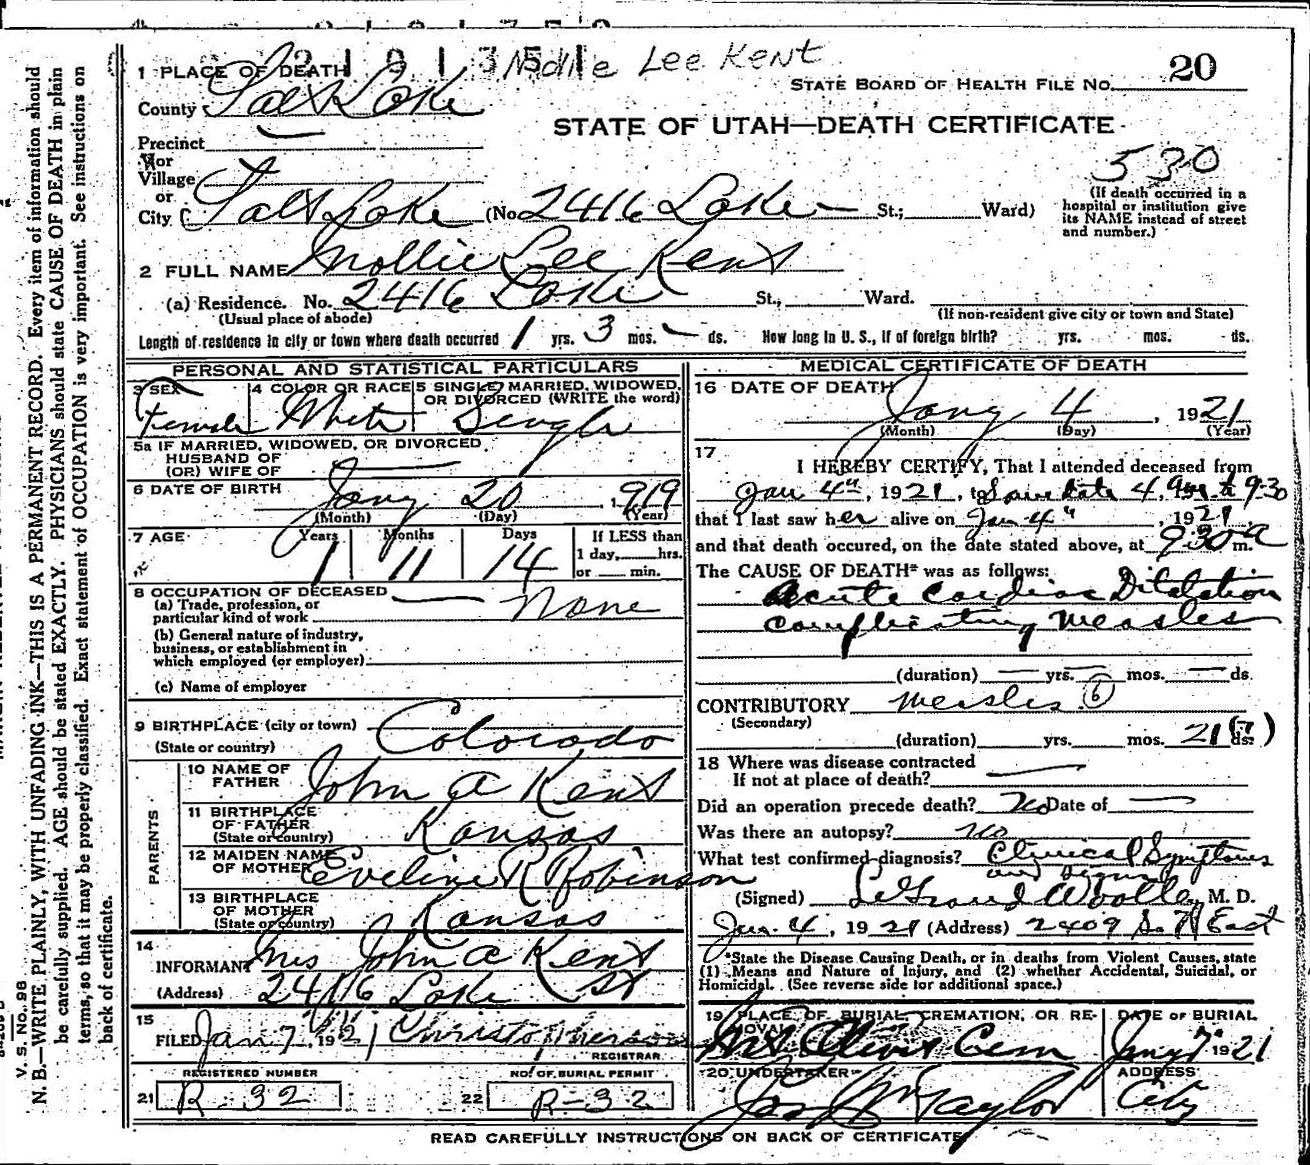 2 1 0 1 3 5 1
Mollie Lee Kent
20
STATE BOARD OF HEALTH FILE No.
STATE OF UTAH—DEATH CERTIFICATE
530
(If death occurred in a
hospital or institution give
its NAME instead of street
and number.)
1 PLACE OF DEATH
County Salt Lake
Precinct
or
Village
or
City Salt Lake (No. 2416 Lake St.; Ward)
2 FULL NAME Mollie Lee Kent
(a) Residence. No. 2416 Lake St., Ward.
(Usual place of abode) (If non-resident give city or town and State)
Length of residence in city or town where death occurred 1 yrs. 3 mos. — ds. How long in U. S., if of foreign birth? yrs. mos. ds.
PERSONAL AND STATISTICAL PARTICULARS
3 SEX Female
4 COLOR OR RACE White
5 SINGLE, MARRIED, WIDOWED, OR DIVORCED (WRITE the word) Single
5a IF MARRIED, WIDOWED, OR DIVORCED
HUSBAND OF
(OR) WIFE OF —
6 DATE OF BIRTH Jany 20, 1919
(Month) (Day) (Year)
7 AGE Years 1 Months 11 Days 14
If LESS than
1 day, hrs.
or min.
8 OCCUPATION OF DECEASED
(a) Trade, profession, or
particular kind of work — None
(b) General nature of industry,
business, or establishment in
which employed (or employer)
(c) Name of employer
9 BIRTHPLACE (city or town)
(State or country) Colorado
PARENTS
10 NAME OF
FATHER John A Kent
11 BIRTHPLACE
OF FATHER
(State or country) Kansas
12 MAIDEN NAME
OF MOTHER Eveline R Robinson
13 BIRTHPLACE
OF MOTHER
(State or country) Kansas
14
INFORMANT Mrs John A Kent
(Address) 2416 Lake St
15
FILED Jan 7, 1921 Christopherson
REGISTRAR
REGISTERED NUMBER
21 R-32
NO. OF BURIAL PERMIT
22 R-32
MEDICAL CERTIFICATE OF DEATH
16 DATE OF DEATH Jany 4, 1921
(Month) (Day) (Year)
17
I HEREBY CERTIFY, That I attended deceased from
Jan 4th, 1921, to Same date 9:30
that I last saw her alive on Jan 4", 1921
and that death occured, on the date stated above, at 9:30 a m.
The CAUSE OF DEATH* was as follows:
Acute Cardiac Dilatation
complicating Measles
(duration) — yrs. — mos. — ds.
CONTRIBUTORY Measles (6)
(Secondary)
(duration) yrs. mos. 21 (?) ds.
18 Where was disease contracted
If not at place of death? —
Did an operation precede death? No Date of —
Was there an autopsy? No
What test confirmed diagnosis? Clinical Symptoms
and signs
(Signed) LeGrand Woolley, M. D.
Jan. 4, 1921 (Address) 2409 So. 7 East
*State the Disease Causing Death, or in deaths from Violent Causes, state
(1) Means and Nature of Injury, and (2) whether Accidental, Suicidal, or
Homicidal. (See reverse side for additional space.)
19 PLACE OF BURIAL, CREMATION, OR REMOVAL
Mt Olivet Cem
DATE OF BURIAL
Jany 7 1921
20 UNDERTAKER
Jas W Taylor
ADDRESS
City
READ CAREFULLY INSTRUCTIONS ON BACK OF CERTIFICATE
N. B.—WRITE PLAINLY, WITH UNFADING INK—THIS IS A PERMANENT RECORD. Every item of information should
be carefully supplied. AGE should be stated EXACTLY. PHYSICIANS should state CAUSE OF DEATH in plain
terms, so that it may be properly classified. Exact statement of OCCUPATION is very important. See instructions on
back of certificate.
V. S. No. 98